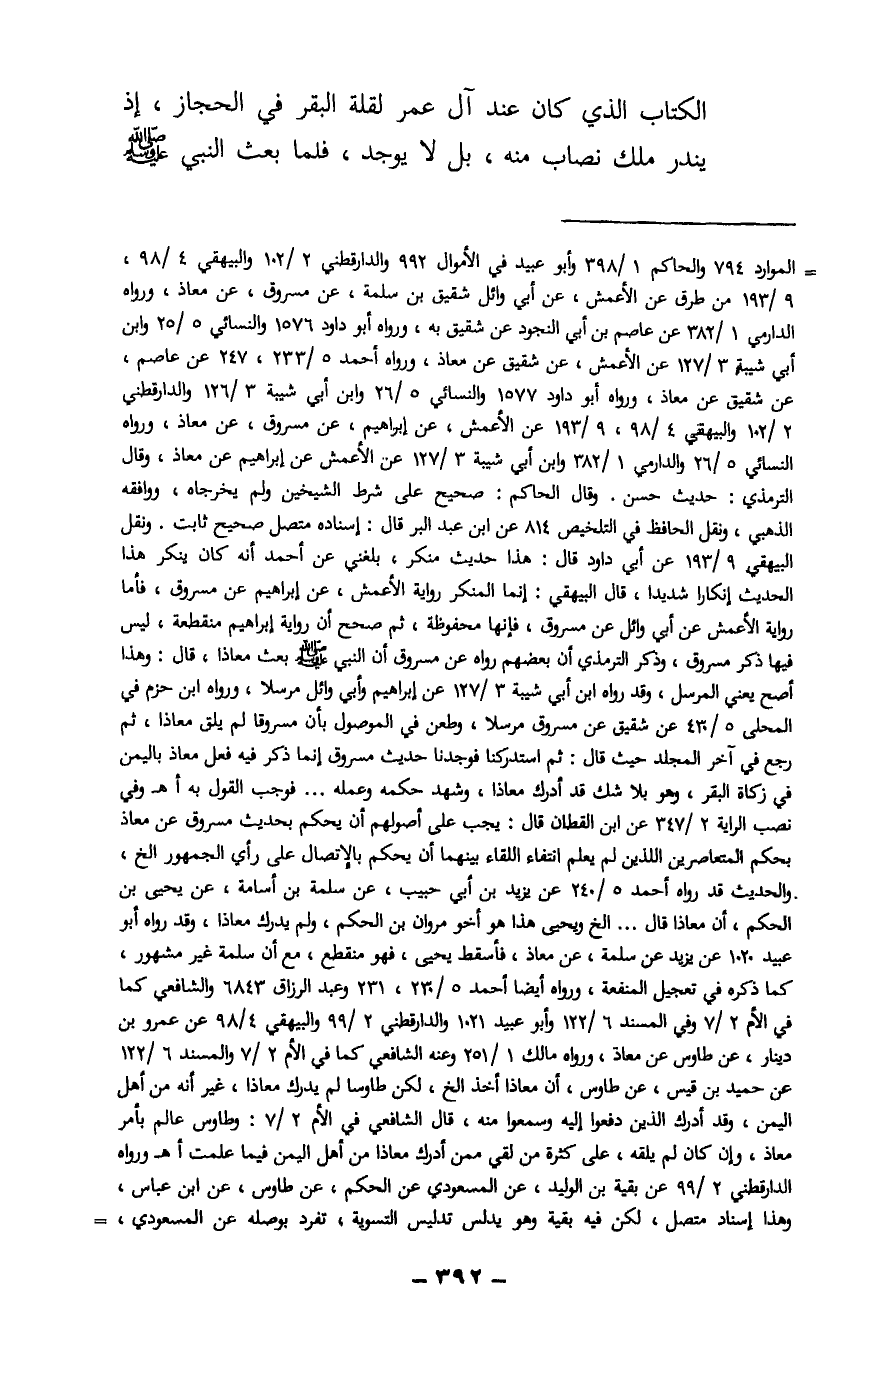 الكتاب الذي كان عند آل عمر لقلة البقر في الحجاز ، إذ
يندر ملك نصاب منه ، بل لا يوجد ، فلما بعث النبي ﷺ
= الموارد ٧٩٤ والحاكم ١ /٣٩٨ وأبو عبيد في الأموال ٩٩٢ والدارقطني ٢ /١٠٢ والبيهقي ٤ /٩٨ ،
٩ /١٩٣ من طرق عن الأعمش ، عن أبي وائل شقيق بن سلمة ، عن مسروق ، عن معاذ ، ورواه
الدارمي ١ /٣٨٢ عن عاصم بن أبي النجود عن شقيق به ، ورواه أبو داود ١٥٧٦ والنسائي ٥ /٢٥ وابن
أبي شيبة ٣ /١٢٧ عن الأعمش ، عن شقيق عن معاذ ، ورواه أحمد ٥ /٢٣٣ ، ٢٤٧ عن عاصم ،
عن شقيق عن معاذ ، ورواه أبو داود ١٥٧٧ والنسائي ٥ /٢٦ وابن أبي شيبة ٣ /١٢٦ والدارقطني
٢ /١٠٢ والبيهقي ٤ /٩٨ ، ٩ /١٩٣ عن الأعمش ، عن إبراهيم ، عن مسروق ، عن معاذ ، ورواه
النسائي ٥ /٢٦ والدارمي ١ /٣٨٢ وابن أبي شيبة ٣ /١٢٧ عن الأعمش عن إبراهيم عن معاذ ، وقال
الترمذي : حديث حسن . وقال الحاكم : صحيح على شرط الشيخين ولم يخرجاه ، ووافقه
الذهبي ، ونقل الحافظ في التلخيص ٨١٤ عن ابن عبد البر قال : إسناده متصل صحيح ثابت . ونقل
البيهقي ٩ /١٩٣ عن أبي داود قال : هذا حديث منكر ، بلغني عن أحمد أنه كان ينكر هذا
الحديث إنكارا شديدا ، قال البيهقي : إنما المنكر رواية الأعمش ، عن إبراهيم عن مسروق ، فأما
رواية الأعمش عن أبي وائل عن مسروق ، فإنها محفوظة ، ثم صحح أن رواية إبراهيم منقطعة ، ليس
فيها ذكر مسروق ، وذكر الترمذي أن بعضهم رواه عن مسروق أن النبي ﷺ بعث معاذا ، قال : وهذا
أصح يعني المرسل ، وقد رواه ابن أبي شيبة ٣ /١٢٧ عن إبراهيم وأبي وائل مرسلا ، ورواه ابن حزم في
المحلى ٥ /٤٣٠ عن شقيق عن مسروق مرسلا ، وطعن في الموصول بأن مسروقا لم يلق معاذا ، ثم
رجع في آخر المجلد حيث قال : ثم استدركنا فوجدنا حديث مسروق إنما ذكر فيه فعل معاذ باليمن
في زكاة البقر ، وهو بلا شك قد أدرك معاذا ، وشهد حكمه وعمله ... فوجب القول به أ هـ وفي
نصب الراية ٢ /٣٤٧ عن ابن القطان قال : يجب على أصولهم أن يحكم بحديث مسروق عن معاذ
بحكم المتعاصرين اللذين لم يعلم انتفاء اللقاء بينهما أن يحكم بالإتصال على رأي الجمهور الخ ،
والحديث قد رواه أحمد ٥ /٢٤٠ عن يزيد بن أبي حبيب ، عن سلمة بن أسامة ، عن يحيى بن
الحكم ، أن معاذا قال ... الخ ويحيى هذا هو أخو مروان بن الحكم ، ولم يدرك معاذا ، وقد رواه أبو
عبيد ١٠٢٠ عن يزيد عن سلمة ، عن معاذ ، فأسقط يحيى ، فهو منقطع ، مع أن سلمة غير مشهور ،
كما ذكره في تعجيل المنفعة ، ورواه أيضا أحمد ٥ /٢٣٠ ، ٢٣١ وعبد الرزاق ٦٨٤٣ والشافعي كما
في الأم ٢ /٧ وفي المسند ٦ /١٢٢ وأبو عبيد ١٠٢١ والدارقطني ٢ /٩٩ والبيهقي ٤ /٩٨ عن عمرو بن
دينار ، عن طاوس عن معاذ ، ورواه مالك ١ /٢٥١ وعنه الشافعي كما في الأم ٢ /٧ والمسند ٦ /١٢٢
عن حميد بن قيس ، عن طاوس ، أن معاذا أخذ الخ ، لكن طاوسا لم يدرك معاذا ، غير أنه من أهل
اليمن ، وقد أدرك الذين دفعوا إليه وسمعوا منه ، قال الشافعي في الأم ٢ /٧ : وطاوس عالم بأمر
معاذ ، وإن كان لم يلقه ، على كثرة من لقي ممن أدرك معاذا من أهل اليمن فيما علمت أ هـ ورواه
الدارقطني ٢ /٩٩ عن بقية بن الوليد ، عن المسعودي عن الحكم ، عن طاوس ، عن ابن عباس ،
وهذا إسناد متصل ، لكن فيه بقية وهو يدلس تدليس التسوية ، تفرد بوصله عن المسعودي ، =
– ٣٩٢ –